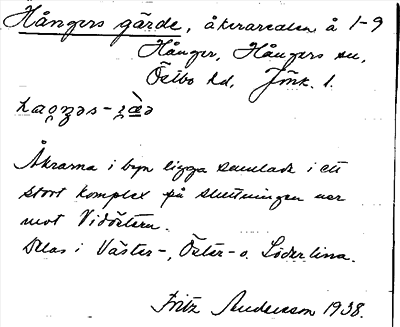 Hångers gärde, åkerarealen å 1-9
Hånger, Hångers sn,
Östbo hd, Jönk. l.
Åkrarna i byn ligga samlade i ett
stort komplex på sluttningen ner
mot Vidöstern.
Delas i Väster-, Öster- o. Söderlina.
Fritz Andersson 1938.